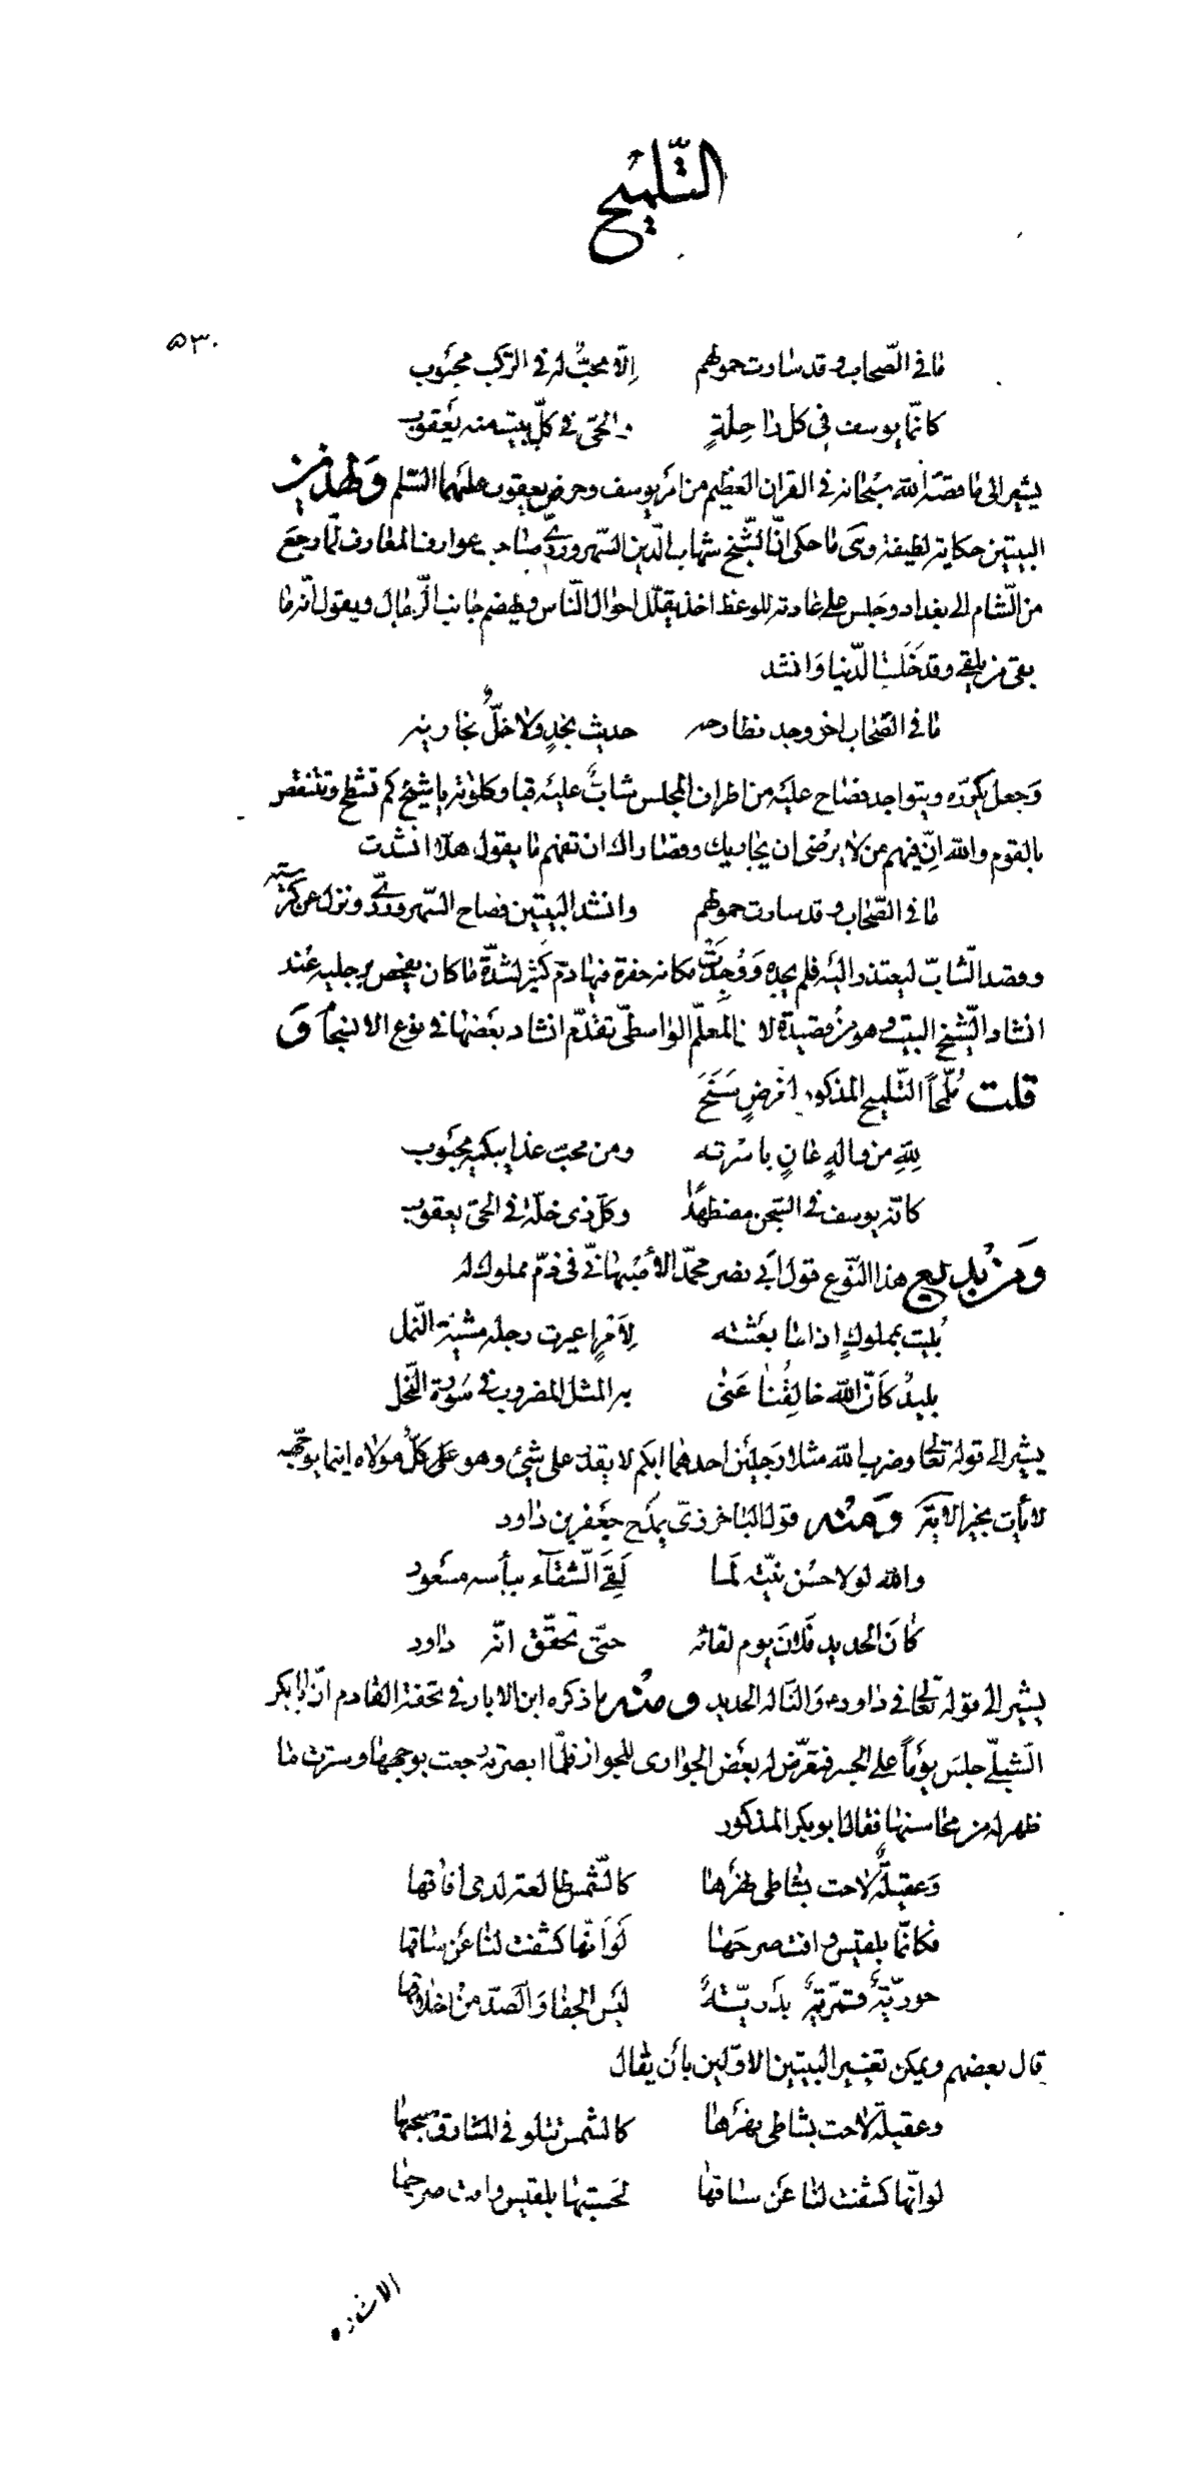 التّلميح
٥٣٠
مٰا في الصّحاب وقد سٰارت حمولهم إلّا محبٌّ له في الركب مَحبُوب
كانّما يوسف في كل رٰاحِلةٍ والحيّ في كلّ بيت منه يَعقوب
يشير الى مٰا قصّه اللّه سبحانه في القران العَظيم من امر يوسف وحزن يعقوب عليهما السّلم وَلهٰذين
البيتين حكاية لطيفة وهى مٰا حكى انّ الشّيخ شهاب الدّين السّهرورديّ صٰاحب عوارف المعٰارف لمّا رجعَ
من الشّام الى بغداد وجَلس على عٰادته للوعظ اخذ يقلّل احوٰال النّاس ويهضم جٰانب الرّجٰال ويقول انّه مٰا
بقى من يلقى وقد خَلَت الدّنيا وَانشد
مٰا في الصّحٰاب اخو وجد نطارحه حديث نجدٍ ولا خلٌّ نجاريه
وَجعل يكرّره ويتواجد فصٰاح عليَه من اطراف المجلس شابٌّ عليَه قبا وكلوته يا شيخ كم تشطح وتنتقص
بالقوم واللّه انّ فيهم من لا يرضى ان يجاريك وقصٰاراك ان تفهم مٰا يقول هلّا انشدت
مٰا في الصّحٰاب وقد سارت حمولهم وانشد البيتين فصاح السّهرورديّ ونزل عن كرسيّه
وقصد الشّابّ ليعتذر اليَه فلم يجده وَوُجدَت مكانه حفرة فيها دم كثير لشدّة مٰا كان يفحص برجليه عند
انشاد الشّيخ البيت وهو من قصيدة لابن المعلّم الوٰاسطى تقدّم انشاد بعَضها في نوع الانسجام وَ
قلت مُلمّحاً التّلميح المذكور لغرضٍ سَنَحَ
لِلّهِ من وٰالهٍ عٰانٍ باسْرته ومن محبّ غدا يبكيه مَحبُوب
كانّه يوسف في السّجن مضطهدًا وكلّ ذى خلّة في الحىّ يعقوب
وَمن بديع هذا النّوع قول ابى نصر محمّد الأصبهانىّ فى ذمّ مملوك له
بُليت بمملوكٍ اذا مٰا بعَثته لِأمرٍ اعيرت رجله مشية النّمل
بليدٌ كَأنّ اللّه خالِقُنٰا عَنىٰ به المثل المضروب في سُورة النّحل
يشير الى قوله تعٰالى وضرب اللّه مثلا رَجلَين احدهما ابكم لا يقدر على شيئ وهو كَلٌّ على مولاه اينما يوجّهه
لا يأت بخير الاية وَمنْه قول البٰاخرزىّ يمدَح جعَفر بن دٰاود
واللّه لولا حسُن نيّته لمٰا لَقِىَ الشّقَآء ببأسه مسَعود
كٰانَ الحديد فَلانَ يوم لقائه حتّى تحقّق انّه دٰاود
يشير الى قوله تعٰالى في دٰاود وَالنّا له الحديد ومنْه مٰا ذكره ابن الابار في تحفة القٰادم انّ ابا بكر
الشّبلىّ جلسَ يوَماً على الجسر فتعَرّض له بعَض الجوٰارى للجواز فلمّا ابصرته رجعت بوجهها وسترت مٰا
ظهر له من محٰاسنها فقال ابو بكر المذكور
وَعقيلةٌ لاحت بشٰاطى نهرهٰا كالشّمس طالعة لدى افٰاقها
فكانّما بلقيس وافت صرحَهٰا لَوَ انّها كشفت لنٰا عَن سٰاقها
حوريّةٌ قمَريّةٌ بدَريّةٌ ليَس الجفٰا وَالصّدّ من اخلاقها
قال بعضهم ويمكن تغيير البيتين الاوّلين بأن يقٰال
وعقيلة لاحت بشٰاطى نهرهٰا كالشمس تتلو في المشارق صبحهٰا
لو انّها كشفت لنٰا عَن سٰاقها لحَسبتهٰا بلقيس وافت صرحهٰا
الاشاره